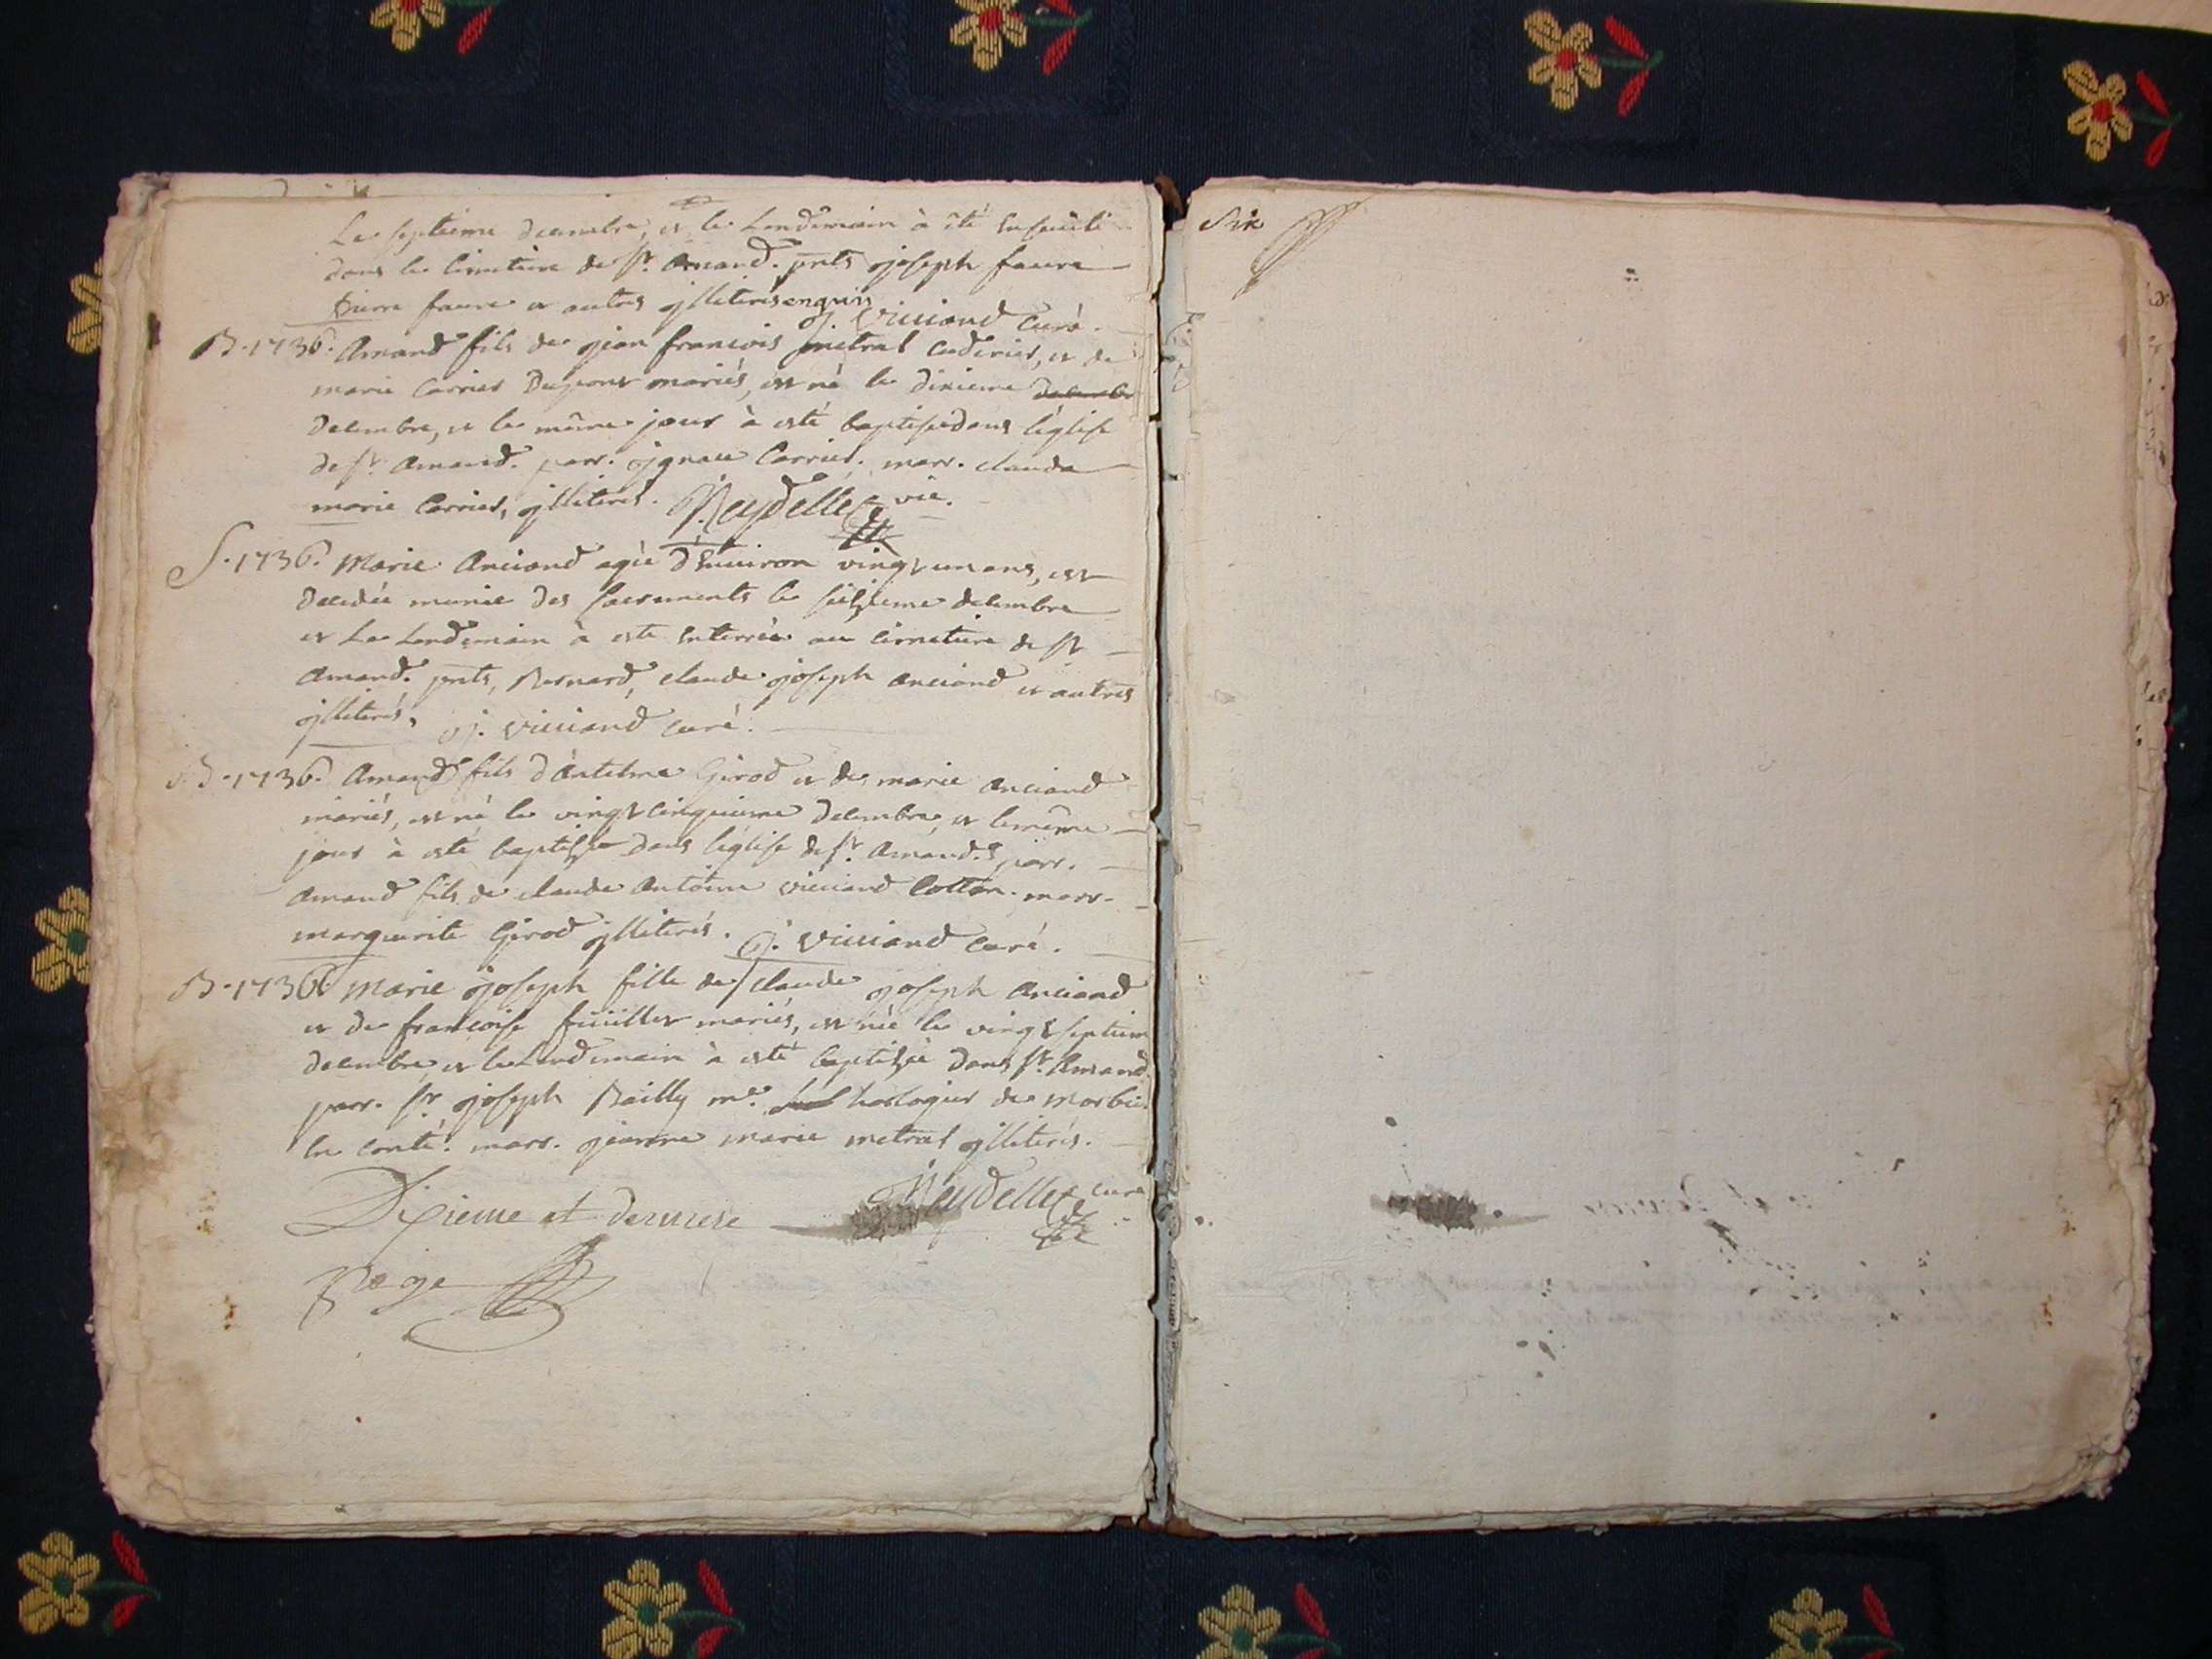 Le septieme decembre, et le Lendemain à été Enseueli
dans le Cimetiere de St. Amand. pnts joseph faure
pierre faure et autres jlliterés enquis
j. Viviand Curé.
B. 1736. Amand fils de jean francois metral et de
marie Carrier mariés, est né le dixieme
decembre, et le même jour à esté baptisé dans léglise
de St. Amand. parr. jgnace Carrier. marr. clauda
marie Carrier, jlliterés. Reydellet vic.
S. 1736. Marie Anciand agée d'Enuiron vingt un ans, est
decedée munie des sacrements le seizieme decembre
et Le Lendemain à esté Enterrée au Cimetiere de St
Amand. pnts, Bernard, claude joseph Anciand et autres
jlliterés, j. Viviand Curé.
B. 1736. Amand fils d'Antelme Girod et de marie Anciand
mariés, est né le vingt cinquieme decembre, et le même
jour à esté baptisé dans léglise de St. Amand. parr.
Amand fils de claude Antoine viviand Cottan. marr.
marguerite Girod jlliterés. j. Viviand Curé.
B. 1736. Marie joseph fille de claude joseph Anciand
et de francoise mariés, est née le vingt septiem
decembre et le Lendemain à esté baptisée dans St. Amand.
parr. Sr. joseph Bailly me. horlogier de morbier
En conté. marr. jeanne marie metral jlliterés.
Reydellet Curé
Dixieme et derniere
Page
Six